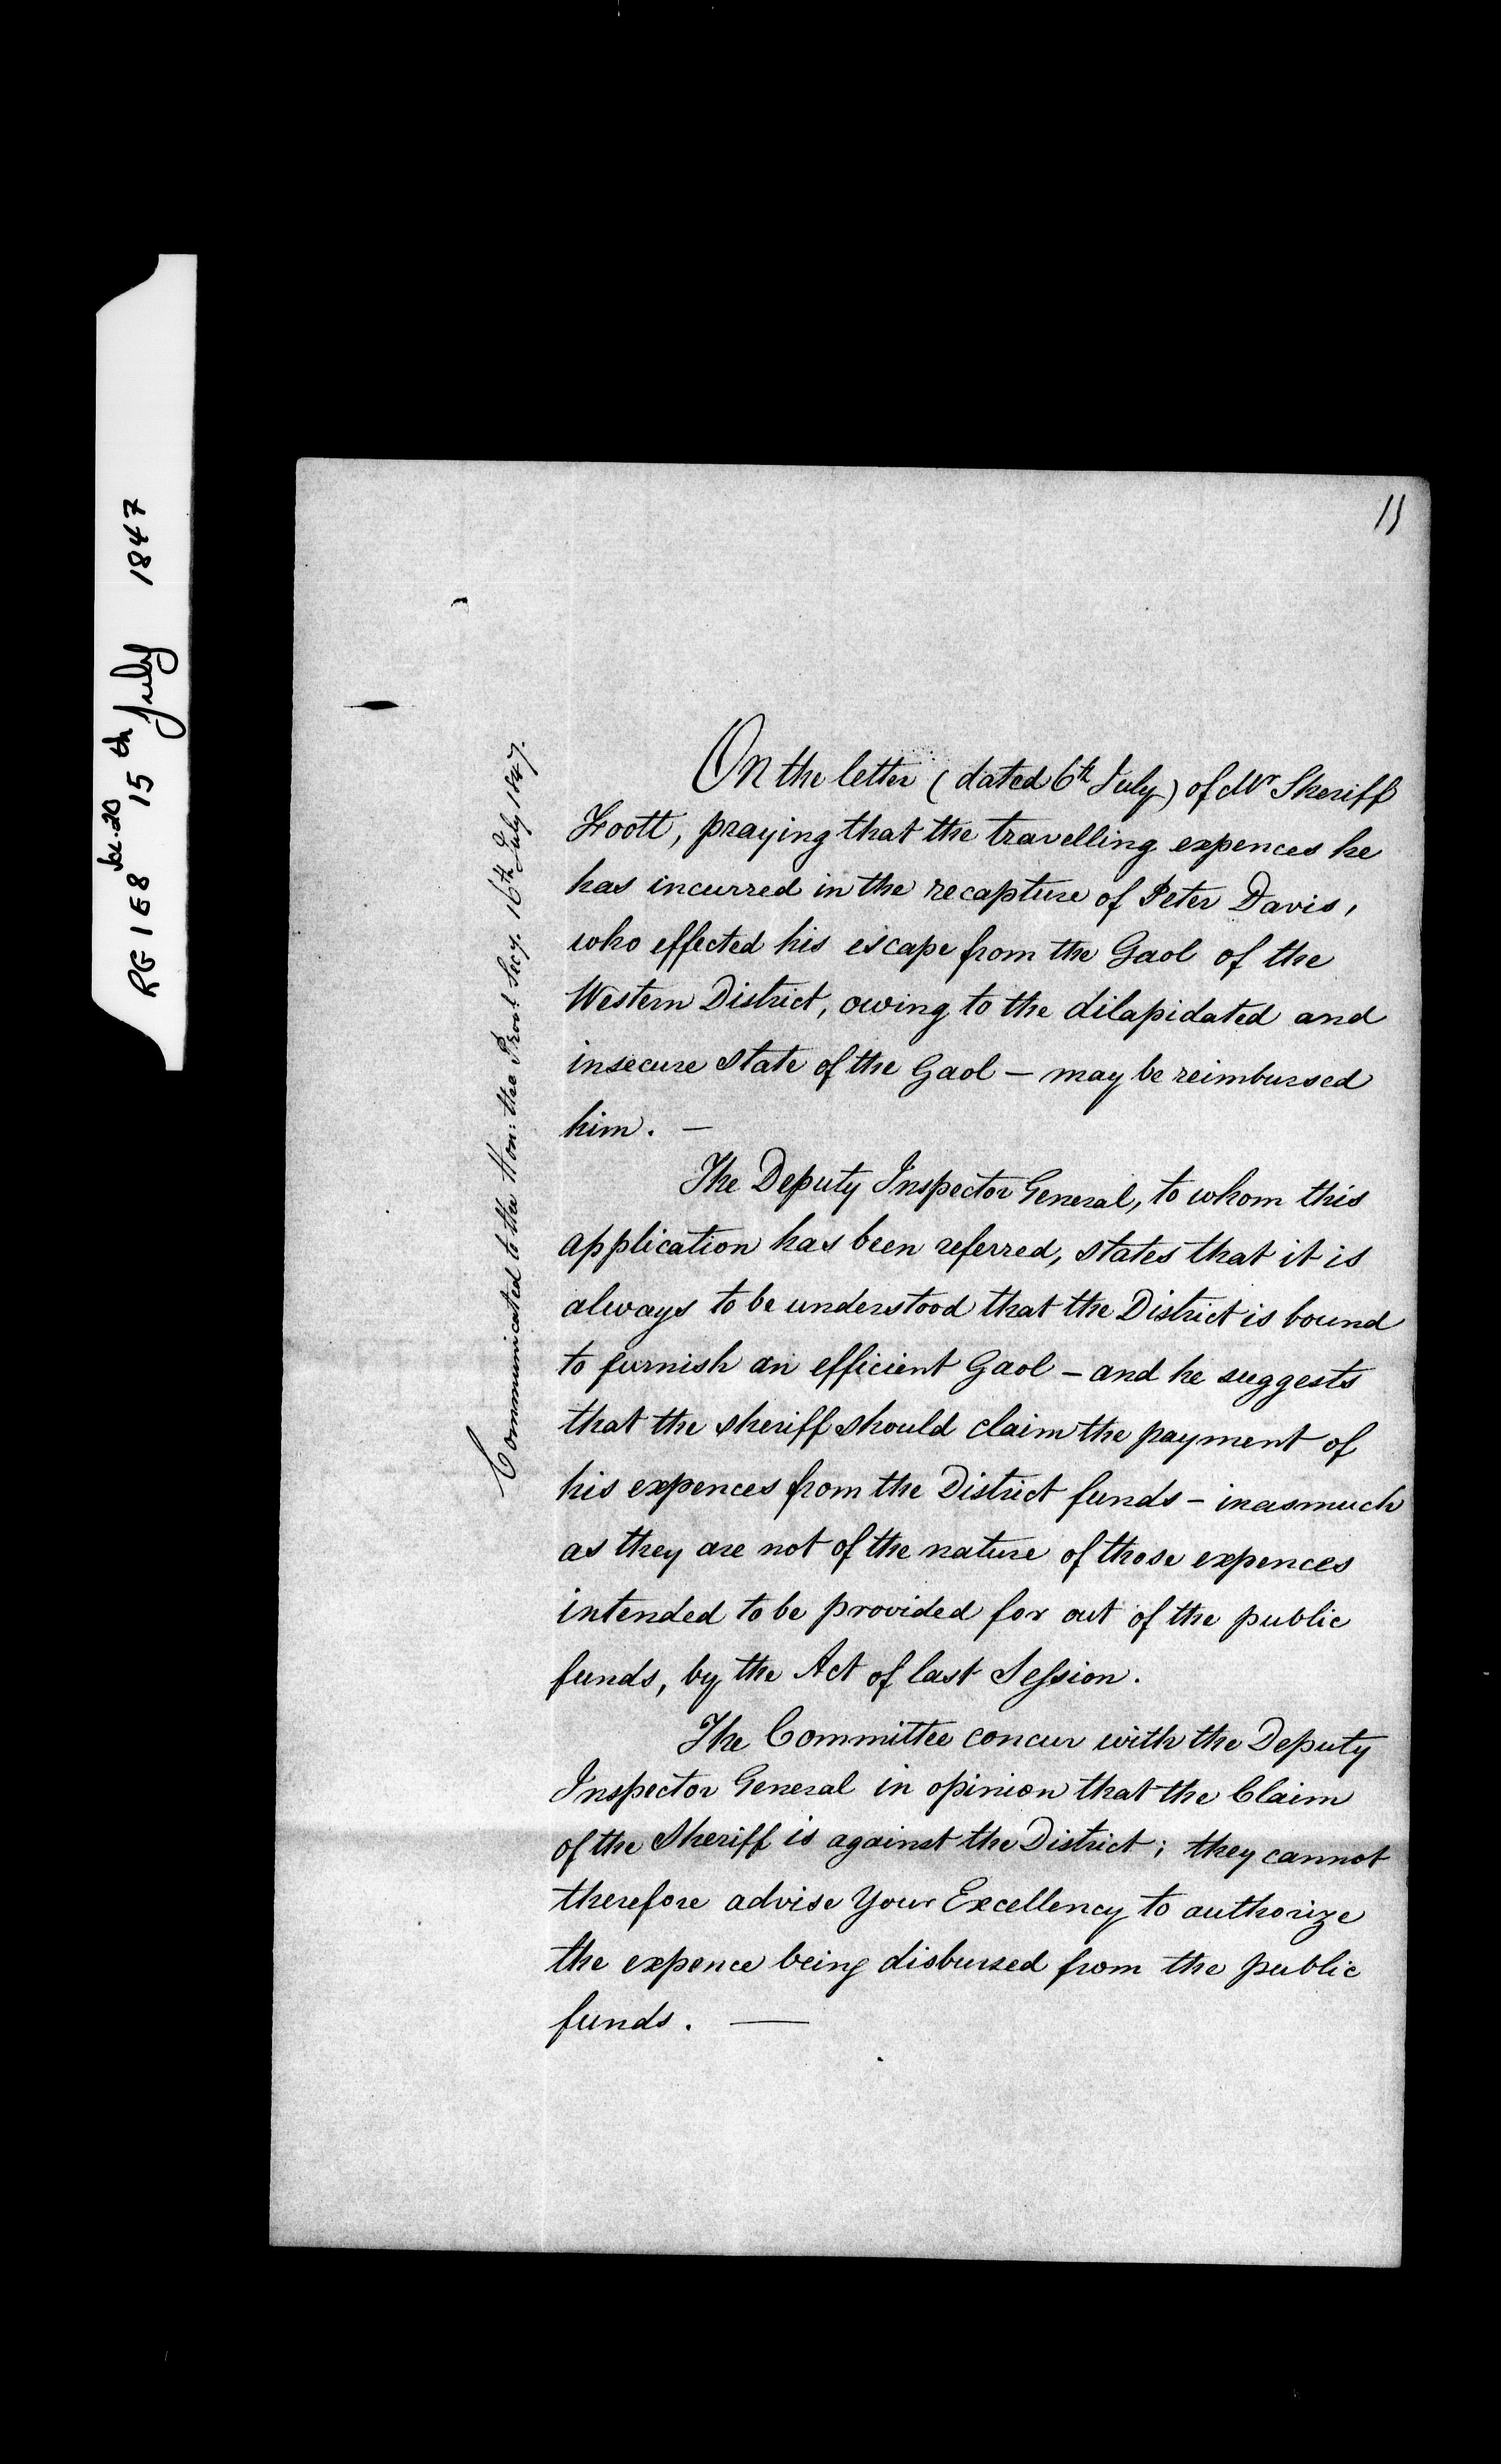 RG 1 E8 15th July 1847
11
Communicated to the Hon: the Provl Secy. 16th July 1847.
On the letter (dated 6th July) of Mr Sheriff
Foott, praying that the travelling expences he
has incurred in the recapture of Peter Davis,
who effected his escape from the Gaol of the
Western District, owing to the dilapidated and
insecure state of the Gaol – may be reimbursed
him. —
The Deputy Inspector General, to whom this
application has been referred, states that it is
always to be understood that the District is bound
to furnish an efficient Gaol – and he suggests
that the sheriff should claim the payment of
his expences from the District funds – inasmuch
as they are not of the nature of those expences
intended to be provided for out of the public
funds, by the Act of last Session.
The Committee concur with the Deputy
Inspector General in opinion that the Claim
of the Sheriff is against the District; they cannot
therefore advise Your Excellency to authorize
the expence being disbursed from the public
funds. —